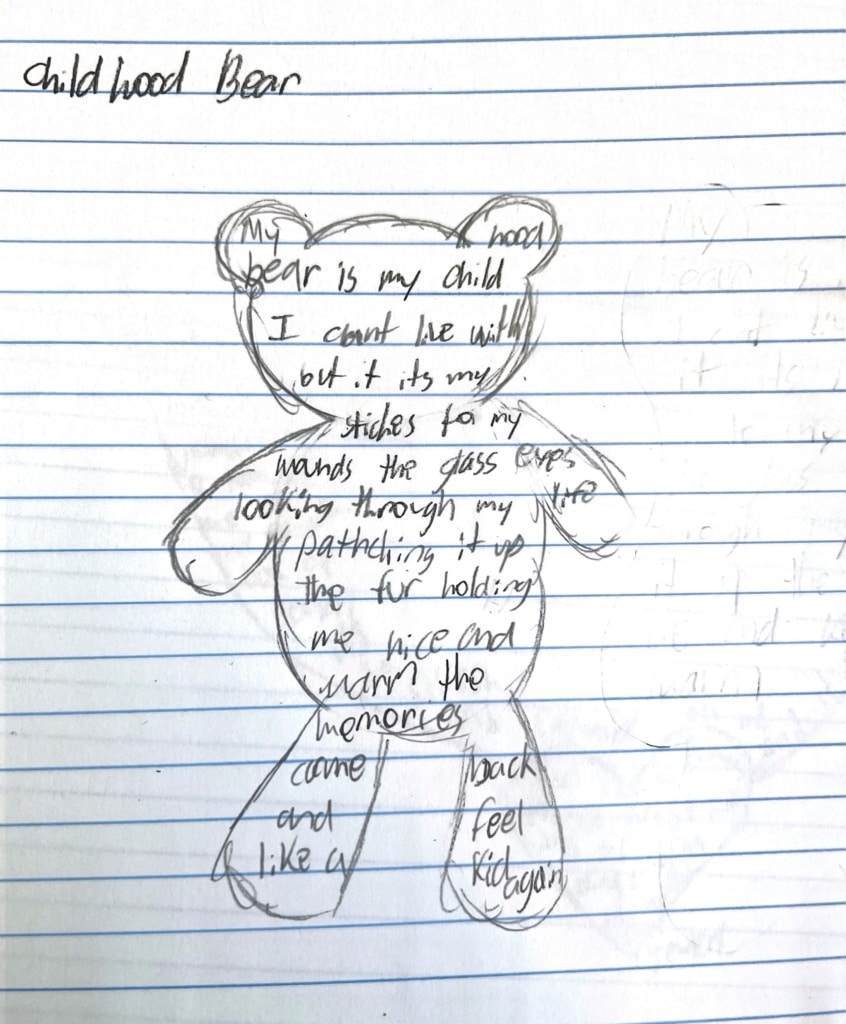 Childhood Bear
My hood
bear is my child
I cant live with
but it its my
stiches for my
wounds the glass eyes
looking through my life
pathching it up
the fur holding
me nice and
warm the
memories
came back
and feel
like a kid again